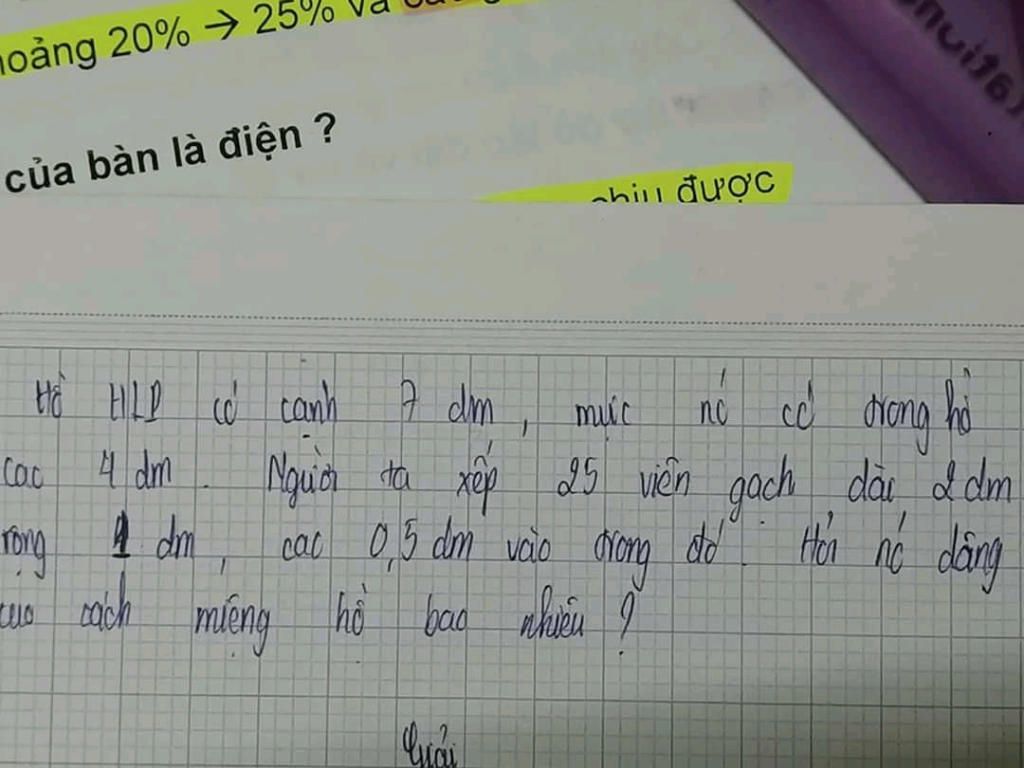 hoảng 20% → 25% và
của bàn là điện ?
chịu được
Hồ HLP có cạnh 7 dm, mực nó có trong hồ
cao 4 dm. Người ta xếp 25 viên gạch dài 2 dm
rộng 1 dm, cao 0,5 dm vào trong đó. Hỏi nó dâng
cao cách miệng hồ bao nhiêu ?
Giải